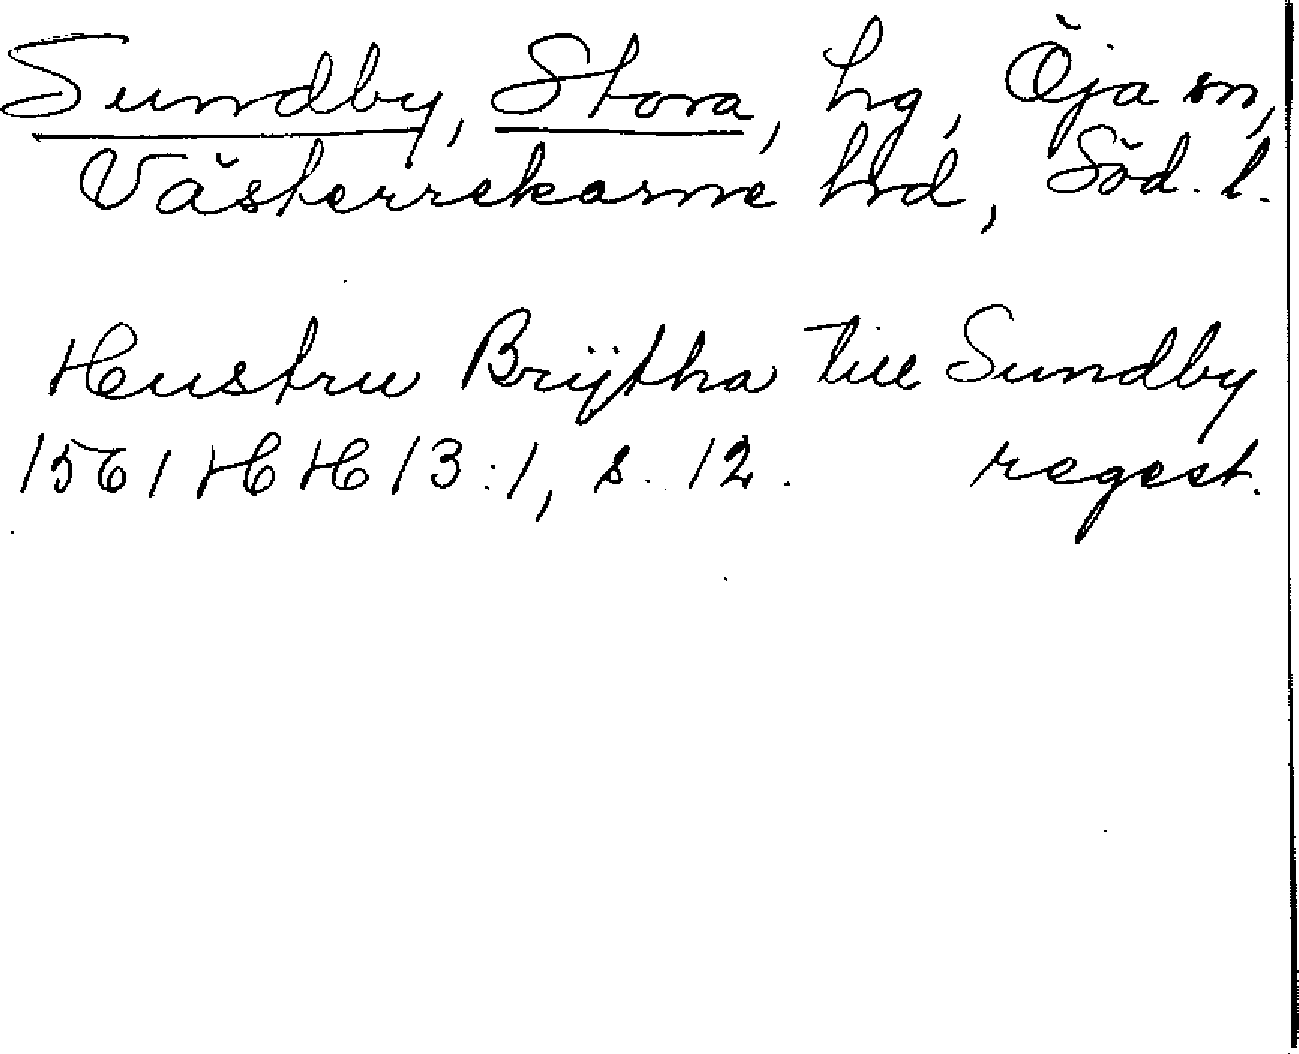 Sundby, Stora, hg, Öja sn,
Västerrekarne hrd, Söd. l.
Hustru Brÿtha till Sundby
1561 HH 13:1, s. 12. regest.